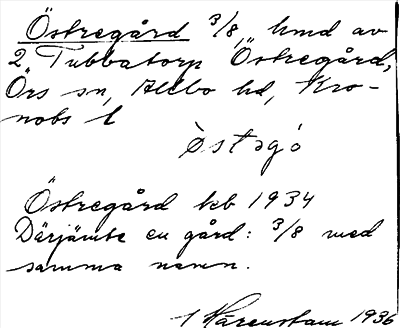 Östregård 3/8, hmd av
2 Tubbatorp "Östregård,
Örs sn, Allbo hd, Kro-
nobs l
òstəgó
Östregård kb 1934
Därjämte en gård: 3/8 med
samma namn.
Härenstam 1936